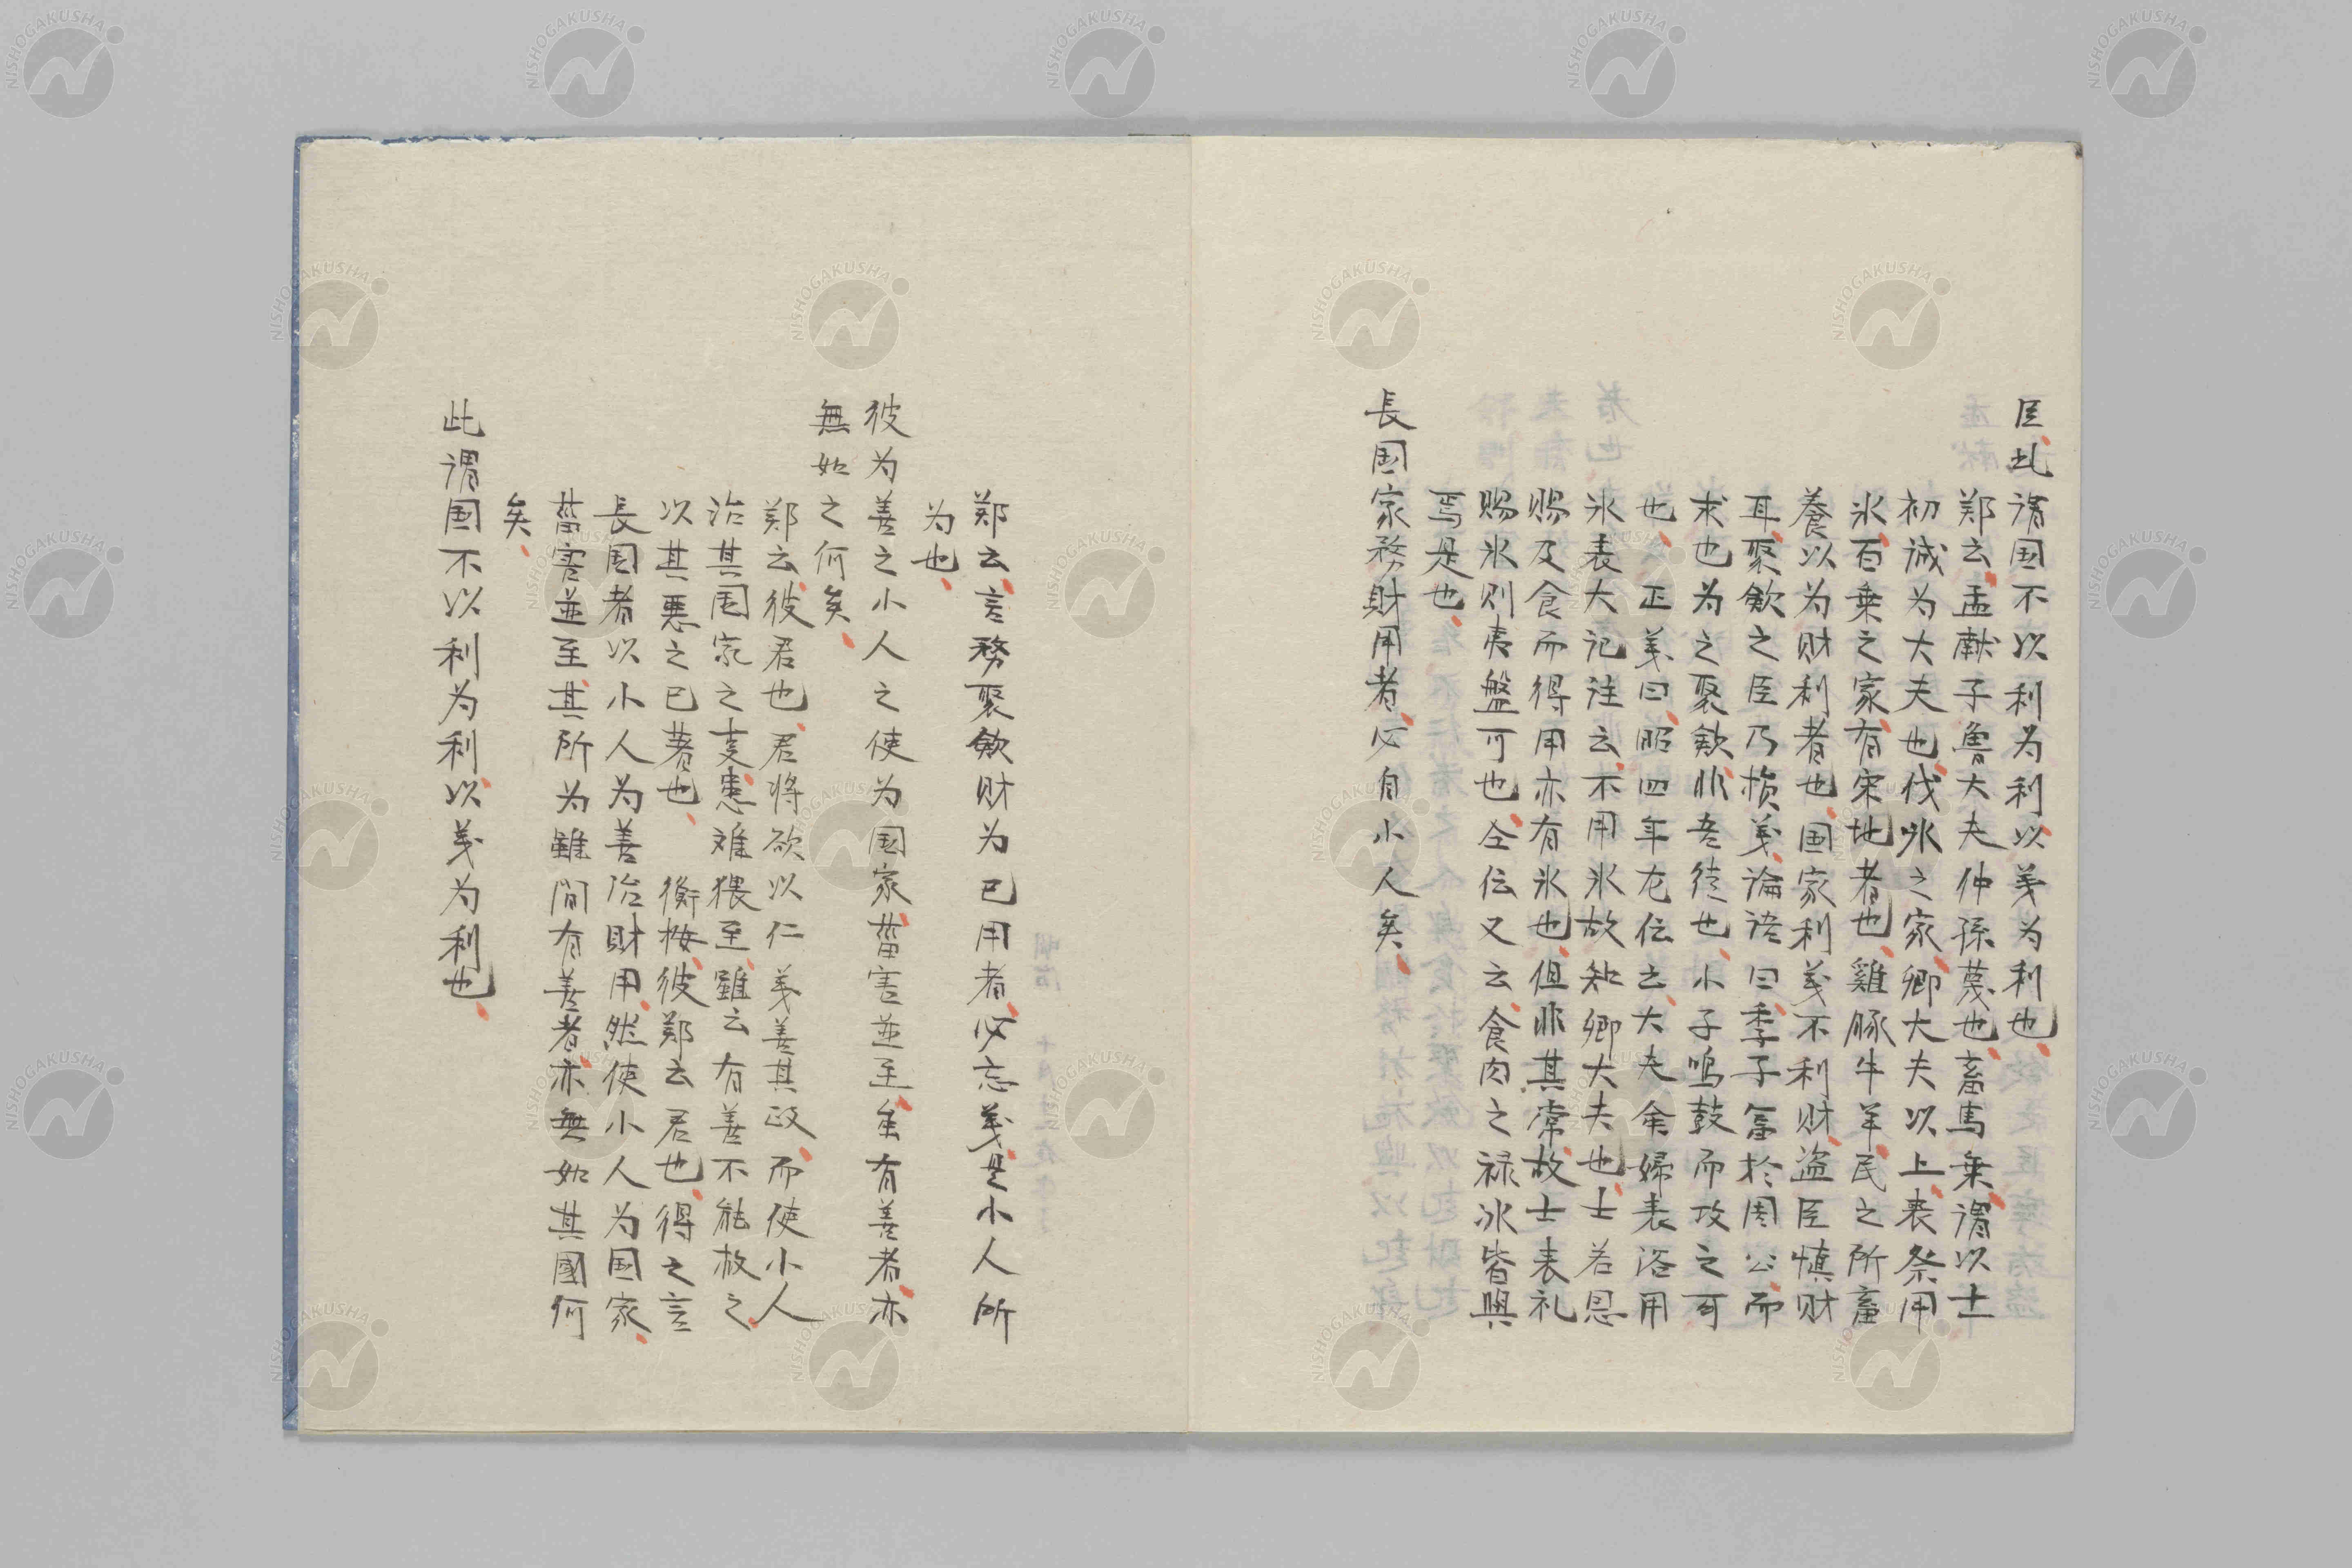 臣此謂国不以利為利以義為利也
郑云孟献子魯大夫仲孫蔑也畜馬乗謂以士
初試為大夫也伐氷之家卿大夫以上喪祭用
氷百乗之家有采地者也雞豚牛羊民之所畜
養以為财利者也国家利義不利财盗臣慎财
耳聚歛之臣乃損義論語曰季子富於周公而
求也為之聚歛非吾徒也小子鳴鼓而攻之可
也正義曰昭四年左伝云大夫命婦喪浴用
氷喪大记注云不用氷故知卿大夫也士若恩
賜及食而得用亦有氷也但非其常故士喪礼
賜氷则夷盤可也仝伝又云食肉之禄氷皆與
焉是也
長国家務財用者必自小人矣
郑云言務聚歛财为己用者必忘義是小人所
为也
彼为善之小人之使为国家菑害並至矣有善者亦
無如之何矣
郑云彼君也君将欲以仁義善其政而使小人
治其国家之事患难猥至雖云有善不能救之
以其悪之已著也 衡按彼郑云君也得之言
長国者以小人为善治財用然使小人为国家
菑害並至其所为雖間有善者亦無如其國何
矣
此謂国不以利为利以義为利也
NISHOGAKUSHA